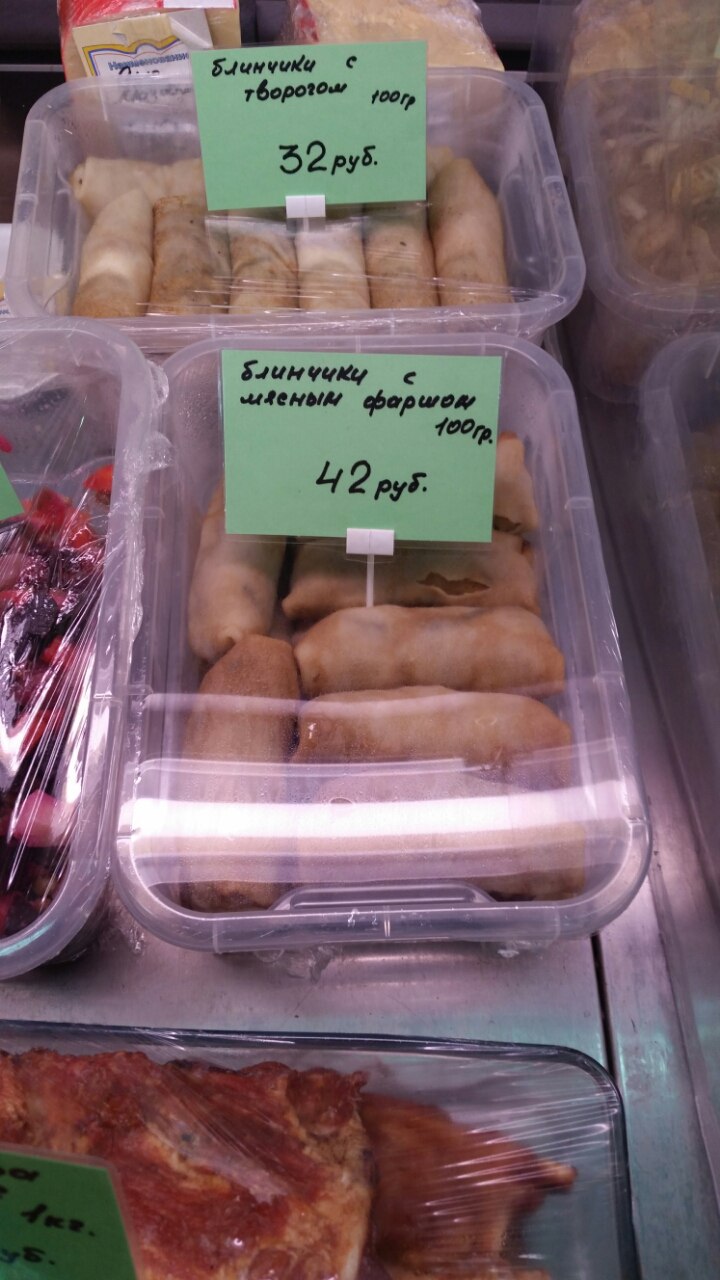 Наименование
блинчики с
творогом 100гр
32 руб.
блинчики с
мясным фаршом
100гр.
42 руб.
1кг.
руб.